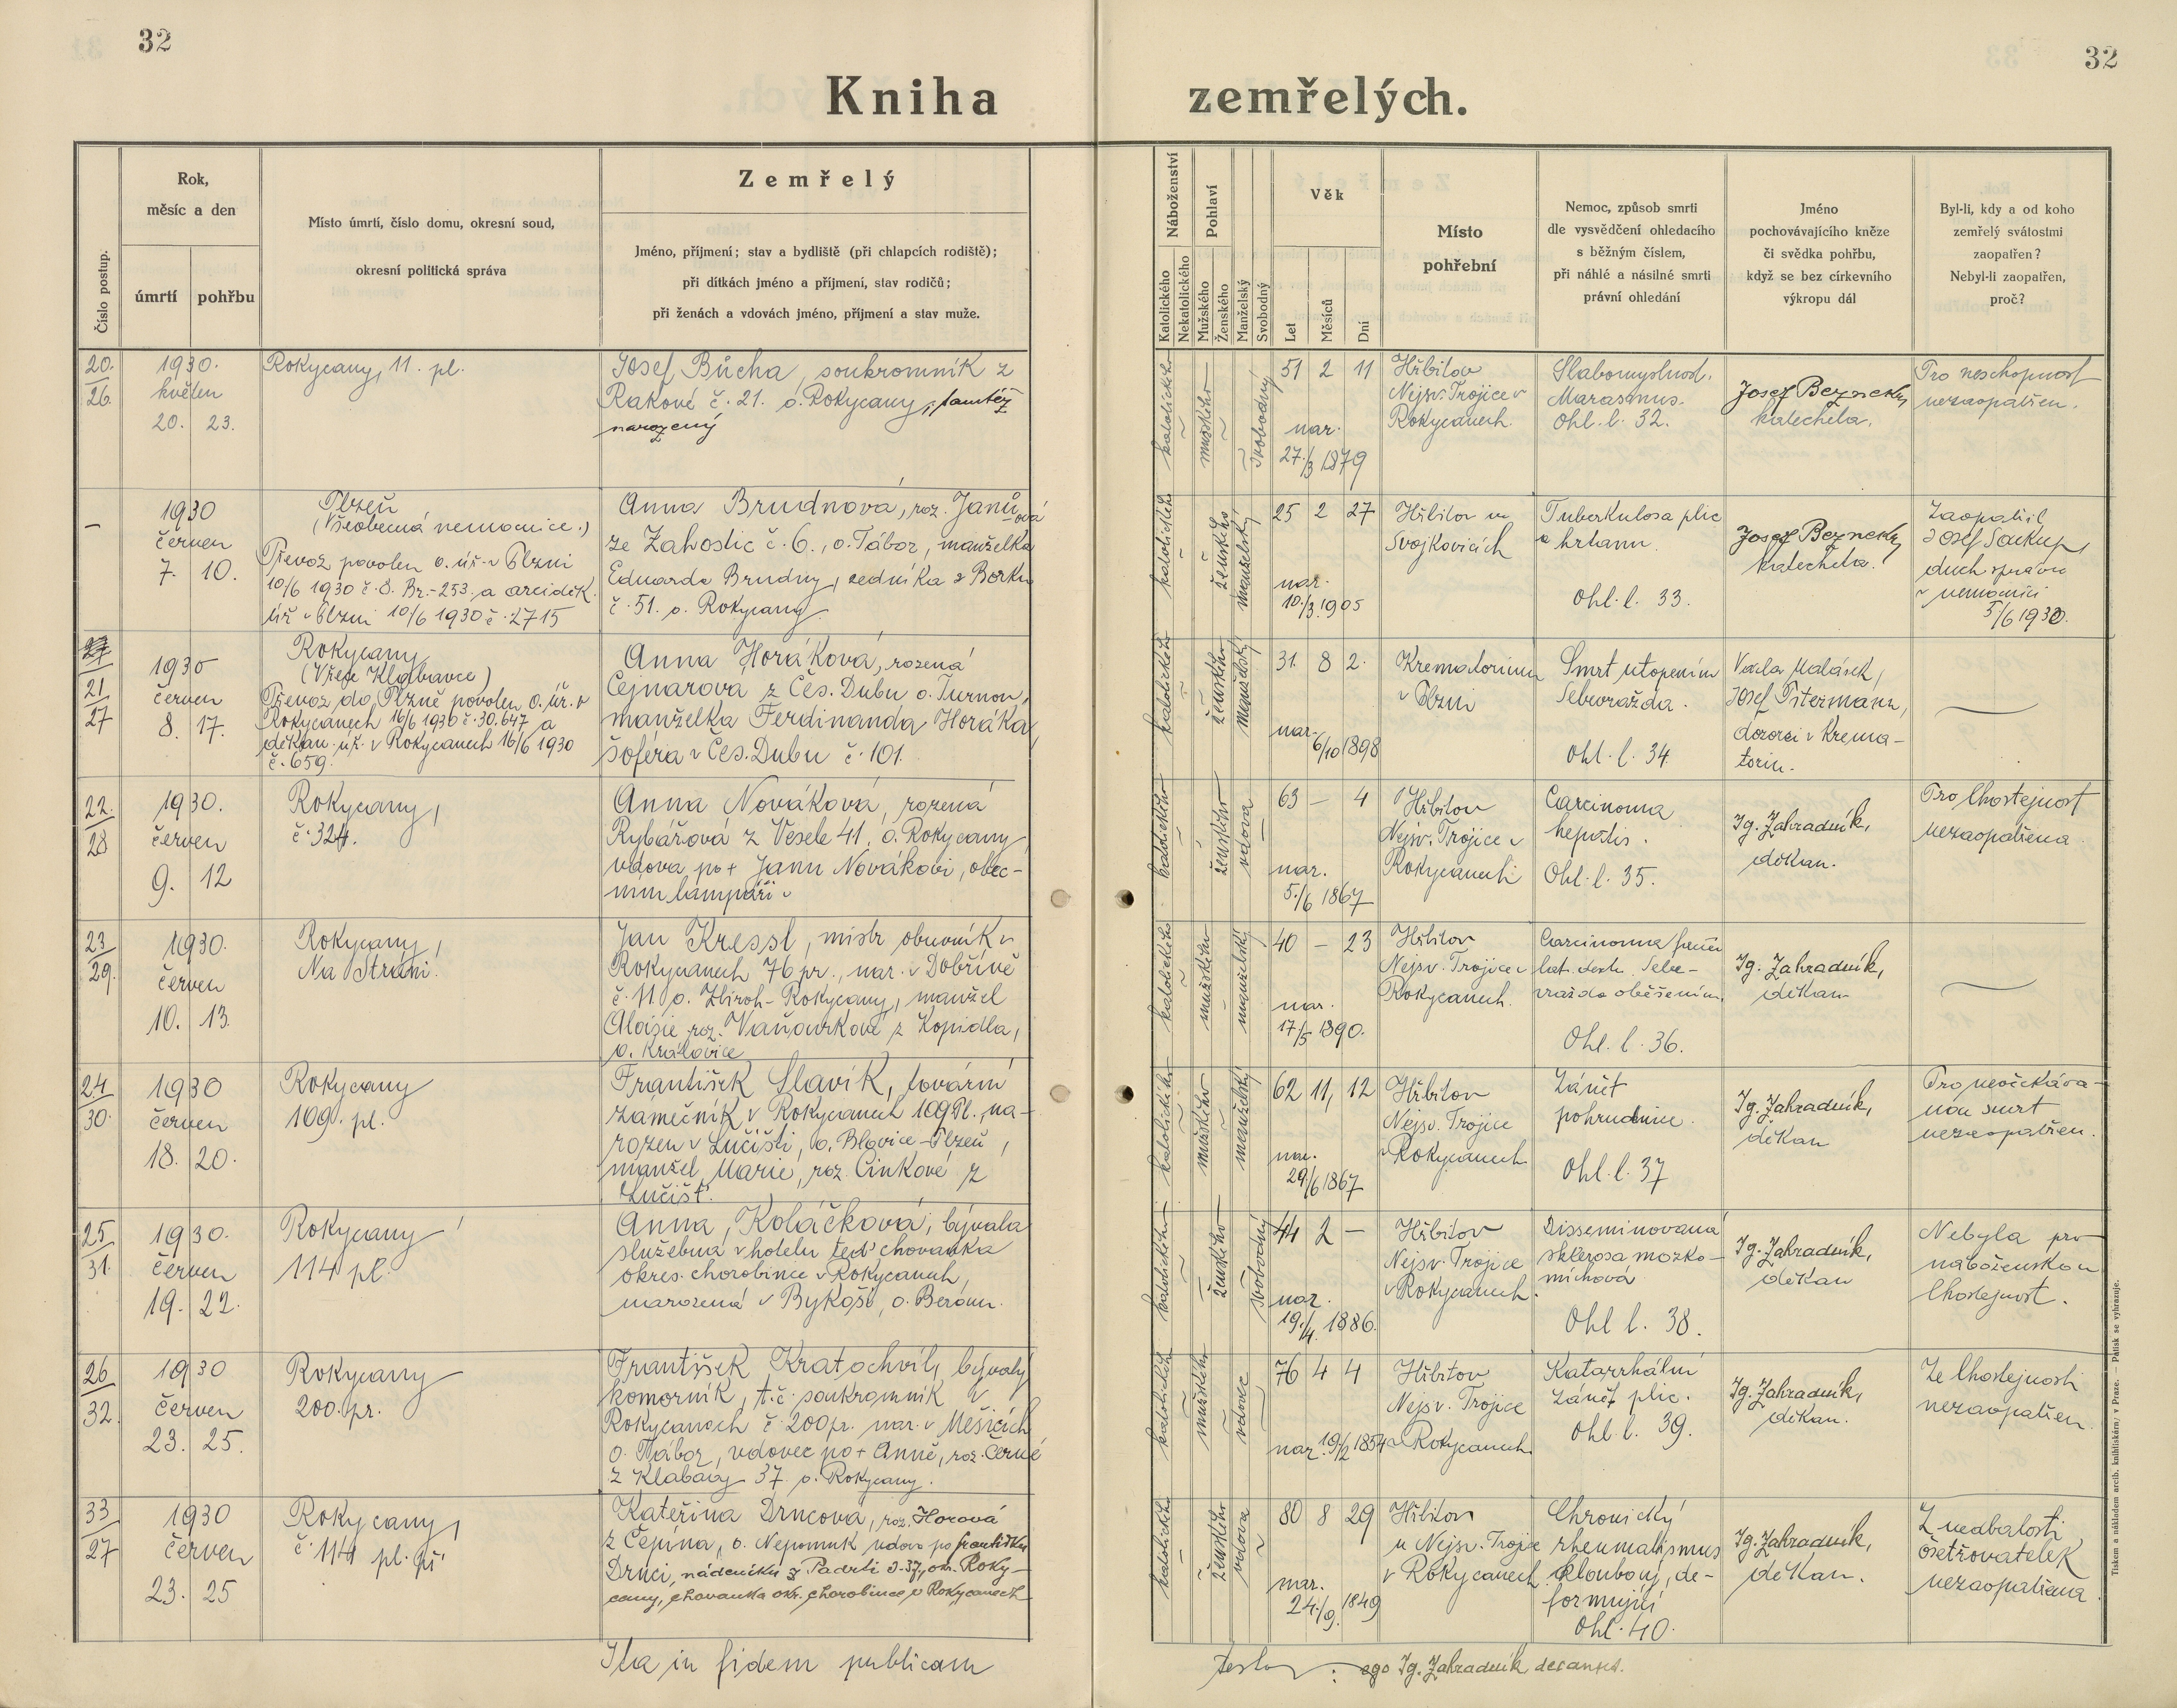 32
32
Kniha zemřelých.
Číslo postup.
Rok,
měsíc a den
úmrtí
pohřbu
Místo úmrtí, číslo domu, okresní soud,
okresní politická správa
Zemřelý
Jméno, příjmení; stav a bydliště (při chlapcích rodiště);
při dítkách jméno a příjmení, stav rodičů;
při ženách a vdovách jméno, příjmení a stav muže.
Náboženství
Katolického
Nekatolického
Pohlaví
Mužského
Ženského
Manželský
Svobodný
Věk
Let
Měsíců
Dní
Místo
pohřební
Nemoc, způsob smrti
dle vysvědčení ohledacího
s běžným číslem,
při náhlé a násilné smrti
právní ohledání
Jméno
pochovávajícího kněze
či svědka pohřbu,
když se bez církevního
výkropu dál
Byl-li, kdy a od koho
zemřelý svátostmi
zaopatřen?
Nebyl-li zaopatřen,
proč?
20.
26.
1930.
květen
20. 23.
Rokycany, 11. pl.
Josef Bůcha, soukromník z
Rakové č. 21. o. Rokycany, tamtéž
narozený
katolického
mužského
svobodný
51 2 11
nar.
27./3 1879
Hřbitov
Nejsv. Trojice v
Rokycanech.
Slabomyslnost.
Marasmus.
Ohl. l. 32.
Josef Beznecky
katecheta.
Pro neschopnost
nezaopatřen.
–
1930
červen
7. 10.
Plzeň
(Všeobecná nemocnice.)
Převoz povolen o. úř. v Plzni
10/6 1930 č. 8. Br.-253 a arciděk.
úř. v Plzni 10/6 1930 č. 2715
Anna Brudnová, roz. Janůová
ze Zahostic č. 6., o. Tábor, manželka
Eduarda Brudny, zedníka z Borku
č. 51. o. Rokycany.
katolického
ženského
manželský
25 2 27
nar.
10./3. 1905
Hřbitov ve
Svojkovicích
Tuberkulosa plic
a hrtanu.
Ohl. l. 33.
Josef Beznecky
katecheta.
Zaopatřil
Josef Soukup,
duch. správce
v nemocnici
5/6 1930.
21
27
1930
červen
8. 17.
Rokycany
(V řece Klabavce)
Převoz do Plzně povolen o. úř. v
Rokycanech 16/6 1930 č. 30.647 a
děkan. úř. v Rokycanech 16/6 1930
č. 659.
Anna Horáková, rozená
Cejnarová z Čes. Dubu o. Turnov,
manželka Ferdinanda Horáka,
šoféra v Čes. Dubu č. 101.
katolického
ženského
manželský
31. 8 2.
nar.
6/10 1898
Krematorium
v Plzni
Smrt utopením
Sebevražda.
Ohl. l. 34
Josef Pitermann,
dozorci v krema-
toriu.
22.
28
1930.
červen
9. 12
Rokycany,
č. 324.
Anna Nováková, rozená
Rybářová z Veselé 41, o. Rokycany
vdova po + Janu Novákovi, obec-
ním lampáři
katolického
ženského
vdova
63 – 4
nar.
5./6 1867
Hřbitov
Nejsv. Trojice v
Rokycanech
Carcinoma
hepatis.
Ohl. l. 35.
Ig. Zahradník,
děkan.
Pro lhostejnost
nezaopatřena
23
29.
1930.
červen
10. 13.
Rokycany,
Na Stráni.
Jan Kressl, mistr obuvník v
Rokycanech 76 pr., nar. v Dobřívě
č. 11. o. Zbiroh-Rokycany, manžel
Aloisie roz. Vaňourkové z Kopidla,
o. Kralovice
katolického
mužského
manželský
40 – 23
nar.
17/5 1890.
Hřbitov
Nejsv. Trojice v
Rokycanech.
Carcinoma
lat. dextr. Sebe-
vražda oběšením.
Ohl. l. 36.
Ig. Zahradník,
děkan
24
30.
1930
červen
18. 20.
Rokycany
109. pl.
František Slavík, tovární
zámečník v Rokycanech 109 Pl., na-
rozen v Lučišti, o. Blovice-Plzeň,
manžel Marie, roz. Činkové z
Lučišť.
katolického
mužského
manželský
62 11, 12
nar.
29/6 1867
Hřbitov
Nejsv. Trojice
v Rokycanech
Zánět
pohrudnice.
Ohl. l. 37
Ig. Zahradník,
děkan
Pro neočekáva-
nou smrt
nezaopatřen.
25
31.
1930.
červen
19. 22.
Rokycany
114 pl.
Anna Koláčková, bývalá
služebná v hotelu teď chovanka
okres. chorobince v Rokycanech,
narozená v Bykoši, o. Beroun.
katolického
ženského
svobodný
44 2 –
nar.
19./4. 1886.
Hřbitov
Nejsv. Trojice
v Rokycanech.
Disseminovaná
sklerosa mozko-
míchová
Ohl l. 38.
Ig. Zahradník,
děkan
Nebyla pro
náboženskou
lhostejnost.
26
32.
1930
červen
23. 25.
Rokycany
200. pr.
František Kratochvíl, bývalý
komorník, t. č. soukromník v
Rokycanech č. 200 pr. nar. v Měšicích
o. Tábor, vdovec po + Anně, roz. Černé
z Klabavy 37. o. Rokycany.
katolického
mužského
vdovec
76 4 4
nar. 19/2 1854
Hřbitov
Nejsv. Trojice
v Rokycanech
Katarrhální
zánět plic.
Ohl. l. 39.
Ig. Zahradník,
děkan.
Ze lhostejnosti
nezaopatřen
33
27
1930
červen
23. 25
Rokycany,
č. 114 pl. př.
Kateřina Drncová, roz. Horová
z Čepína, o. Nepomuk vdova po Františku
Drnci, nádeníku z Padrti č. 37, okr. Roky-
cany, chovanka okr. chorobince v Rokycanech
katolického
ženského
vdova
80 8 29
nar.
24./9. 1849
Hřbitov
u Nejsv. Trojice
v Rokycanech.
Chronický
rheumatismus
kloubový, de-
formující
Ohl. 40.
Ig. Zahradník,
děkan.
Z nedbalosti
ošetřovatelek
nezaopatřena
Ita in fidem publicam
testor: ego Ig. Zahradník decanus.
Tiskem a nákladem arcib. knihtiskárny v Praze. — Patisk se vyhrazuje.